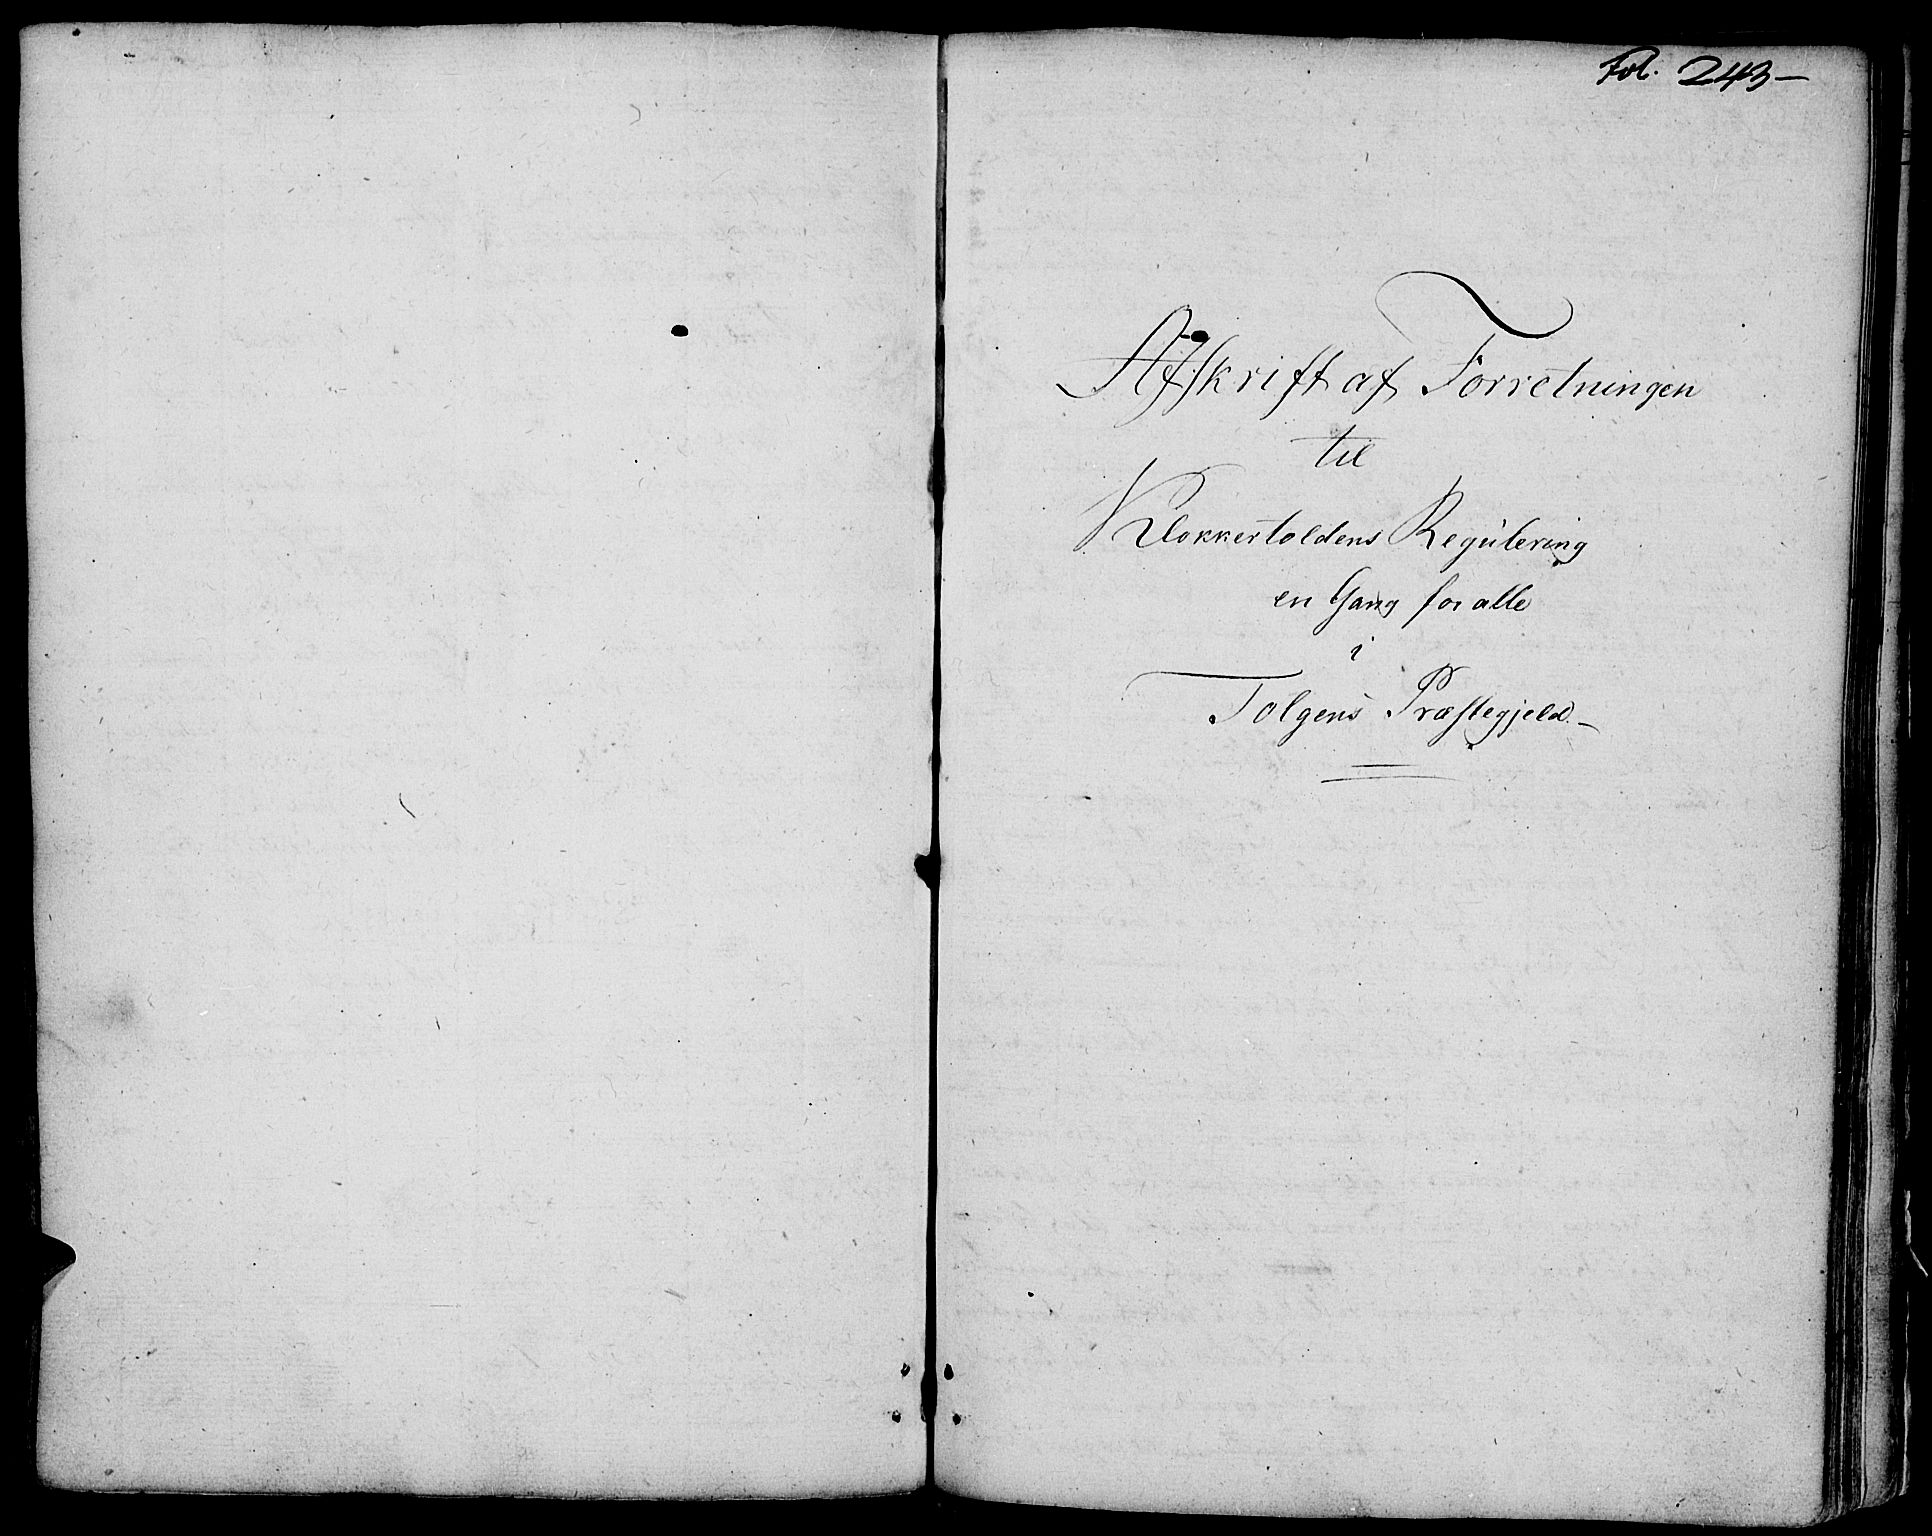 Fol. 243-
Afskrift af Forretningen
til
Klokkertoldens Regulering
en Gang for alle
i
Tolgens Præstegjeld.-